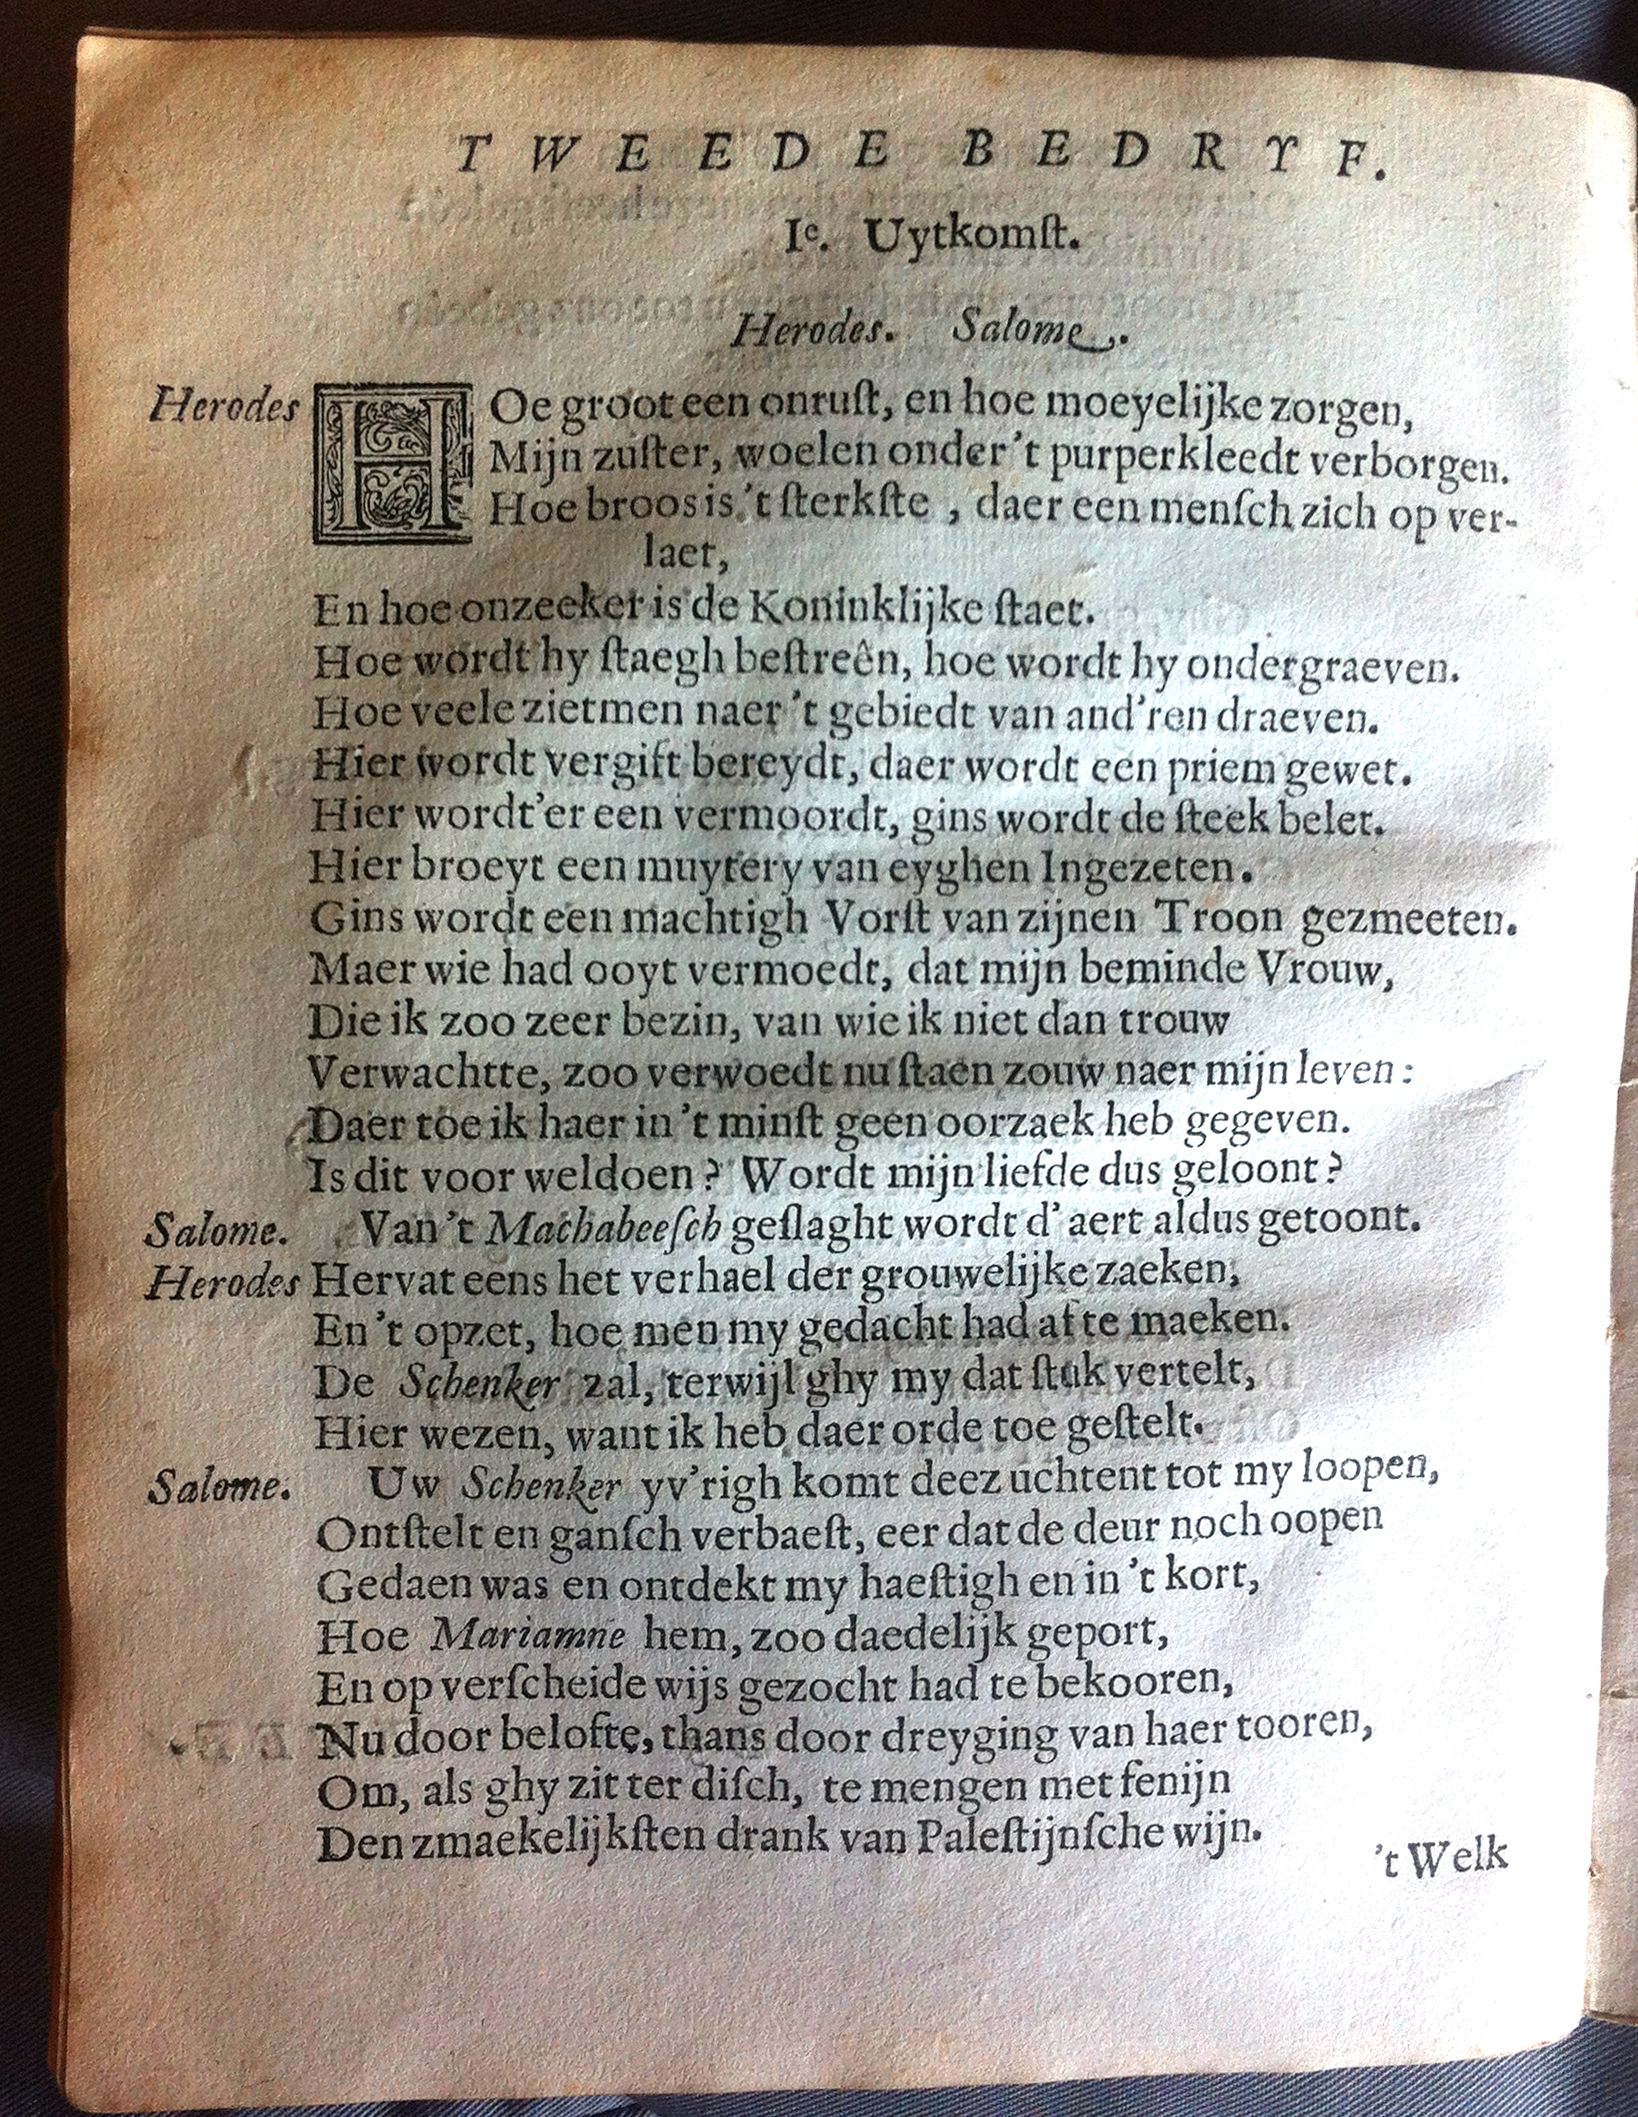 TWEEDE BEDRYF.
Ie. Uytkomſt.
Herodes. Salome.
Herodes HOe groot een onruſt, en hoe moeyelijke zorgen,
Mijn zuſter, woelen onder 't purperkleedt verborgen.
Hoe broos is 't ſterkſte, daer een menſch zich op ver-
laet,
En hoe onzeeker is de Koninklijke ſtaet.
Hoe wordt hy ſtaegh beſtreên, hoe wordt hy ondergraeven.
Hoe veele zietmen naer 't gebiedt van and'ren draeven.
Hier wordt vergift bereydt, daer wordt een priem gewet.
Hier wordt'er een vermoordt, gins wordt de ſteek belet.
Hier broeyt een muytery van eyghen Ingezeten.
Gins wordt een machtigh Vorſt van zijnen Troon gezmeeten.
Maer wie had ooyt vermoedt, dat mijn beminde Vrouw,
Die ik zoo zeer bezin, van wie ik niet dan trouw
Verwachtte, zoo verwoedt nu ſtaen zouw naer mijn leven:
Daer toe ik haer in 't minſt geen oorzaek heb gegeven.
Is dit voor weldoen? Wordt mijn liefde dus geloont?
Salome. Van 't Machabeeſch geſlaght wordt d' aert aldus getoont.
Herodes Hervat eens het verhael der grouwelijke zaeken,
En 't opzet, hoe men my gedacht had af te maeken.
De Schenker zal, terwijl ghy my dat ſtuk vertelt,
Hier wezen, want ik heb daer orde toe geſtelt.
Salome. Uw Schenker yv'righ komt deez uchtent tot my loopen,
Ontſtelt en ganſch verbaeſt, eer dat de deur noch oopen
Gedaen was en ontdekt my haeſtigh en in 't kort,
Hoe Mariamne hem, zoo daedelijk geport,
En op verſcheide wijs gezocht had te bekooren,
Nu door belofte, thans door dreyging van haer tooren,
Om, als ghy zit ter diſch, te mengen met fenijn
Den zmaekelijkſten drank van Paleſtijnſche wijn.
't Welk